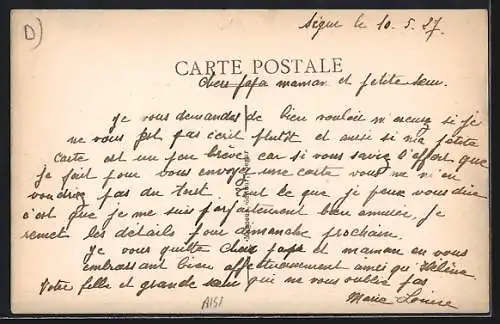 D)
Ségur le 10.5.27.
CARTE POSTALE
Chers papa maman et petite sœur.
Je vous demandes de bien vouloir m'excusez si je
ne vous fait pas écrit plutôt et aussi si ma petite
carte est un peu brève car si vous saviez l'effort que
je fait pour vous envoyer une carte vous ne m'en
voudriez pas du tout. Tout ce que je peux vous dire
c'est que je me suis parfaitement bien amusée, je
remet les détails pour dimanche prochain.
Je vous quitte cher papa et maman en vous
embrassant bien affectueusement ainsi qu'Hélène.
Votre fille et grande sœur qui ne vous oublie pas
Marie Louise
A151